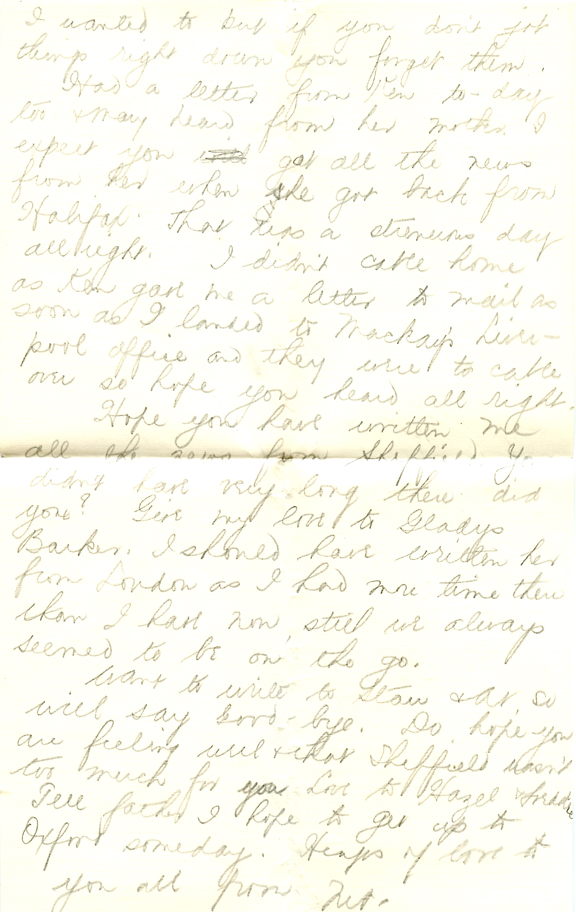 I wanted to but if you don't jot
things right down you forget them.
Had a letter from Ken to-day
too & May heard from her mother. I
expect you got all the news
from her when she got back from
Halifax. That was a strenuous day
all right. I didn't cable home
as Ken gave me a letter to mail as
soon as I landed to Mackay's Liver-
pool office and they were to cable
over so hope you heard all right.
Hope you have written me
all the news from Sheffield. You
didn't have very long there did
you? Give my love to Gladys
Barker. I should have written her
from London as I had more time then
than I have now, still we always
seemed to be on the go.
Want to write to Stan & Art so
will say Good-bye. Do hope you
are feeling well & that Sheffield wasn't
too much for you. Love to Hazel & Freddie
Tell father I hope to get up to
Oxford someday. Heaps of love to
you all from